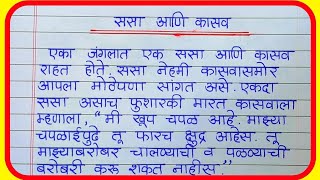 ससा आणि कासव
एका जंगलात एक ससा आणि कासव
राहत होते. ससा नेहमी कासवासमोर
आपला मोठेपणा सांगत असे. एकदा
ससा असाच फुशारकी मारत कासवाला
म्हणाला, "मी खूप चपळ आहे. माझ्या
चपळाईपुढे तू फारच क्षुद्र आहेस. तू
माझ्याबरोबर चालण्याची व पळण्याची
बरोबरी करू शकत नाहीस."